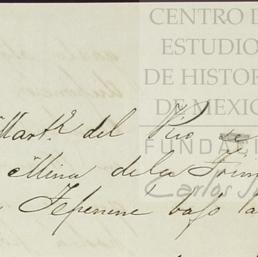 CENTRO D
ESTUDIO
DE HISTOR
DE MEXIC
FUNDAC
Carlos S
Martz del Rio
Mina de la Trin
Tepenene bajo la